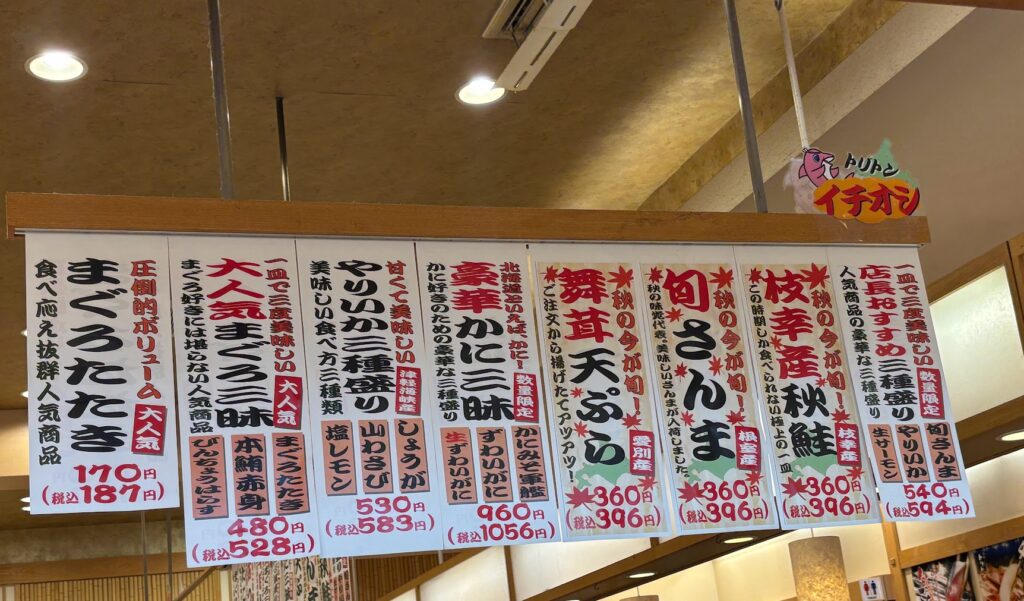 トリトン
イチオシ
一皿で三度美味しい
店長おすすめ三種盛り
人気商品の豪華な三種盛り
数量限定
旬さんま
やりいか
生サーモン
540円
(税込594円)
秋の今が旬!
枝幸産秋鮭
この時期しか食べられない極上の一皿
枝幸産
360円
(税込396円)
秋の今が旬!
旬さんま
秋の味覚代表。美味しいさんまが入荷しました
根室産
360円
(税込396円)
秋の今が旬!
舞茸天ぷら
ご注文から揚げたてアツアツ!
愛別産
360円
(税込396円)
北海道といえば、かに!
豪華かに三昧
かに好きのための豪華な三種盛り
数量限定
かにみそ軍艦
ずわいがに
生ずわいがに
960円
(税込1056円)
甘くて美味しい
やりいか三種盛り
美味しい食べ方三種類
津軽海峡産
しょうが
山わさび
塩レモン
530円
(税込583円)
一皿で三度美味しい
大人気まぐろ三昧
まぐろ好きには堪らない人気商品
大人気
まぐろたたき
本鮪赤身
びんちょうはらす
480円
(税込528円)
圧倒的ボリューム
まぐろたたき
食べ応え抜群人気商品
大人気
170円
(税込187円)